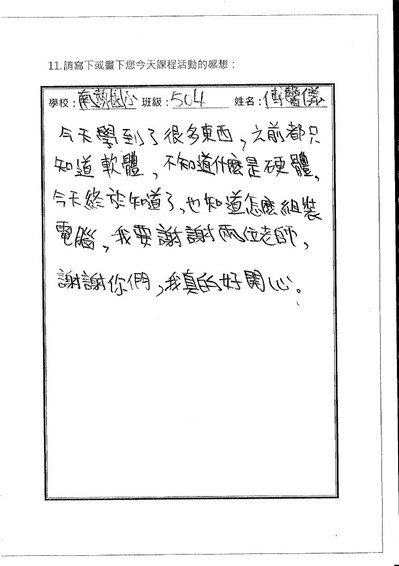 11.請寫下或畫下您今天課程活動的感想：
學校：南勢國小 班級：504 姓名：傅馨儀
今天學到了很多東西，之前都只
知道軟體，不知道什麼是硬體，
今天終於知道了，也知道怎麼組裝
電腦，我要謝謝兩位老師，
謝謝你們，我真的好開心。